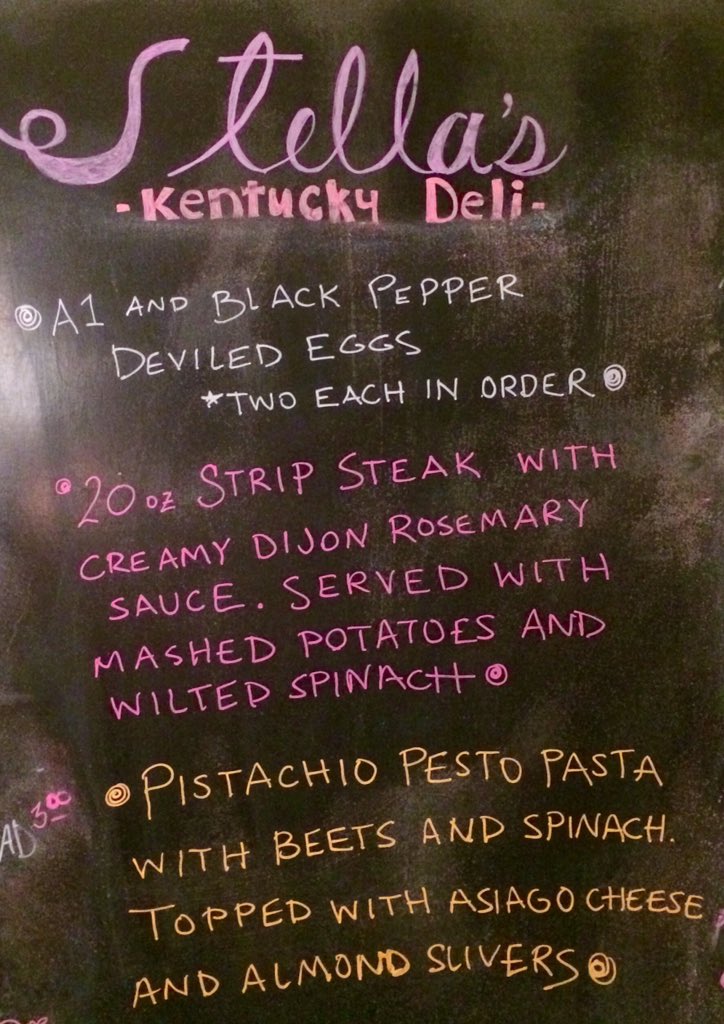 Stella's
-Kentucky Deli-
A1 AND BLACK PEPPER
DEVILED EGGS
*TWO EACH IN ORDER
20 oz STRIP STEAK WITH
CREAMY DIJON ROSEMARY
SAUCE. SERVED WITH
MASHED POTATOES AND
WILTED SPINACH
PISTACHIO PESTO PASTA
WITH BEETS AND SPINACH.
TOPPED WITH ASIAGO CHEESE
AND ALMOND SLIVERS
AD 3.00